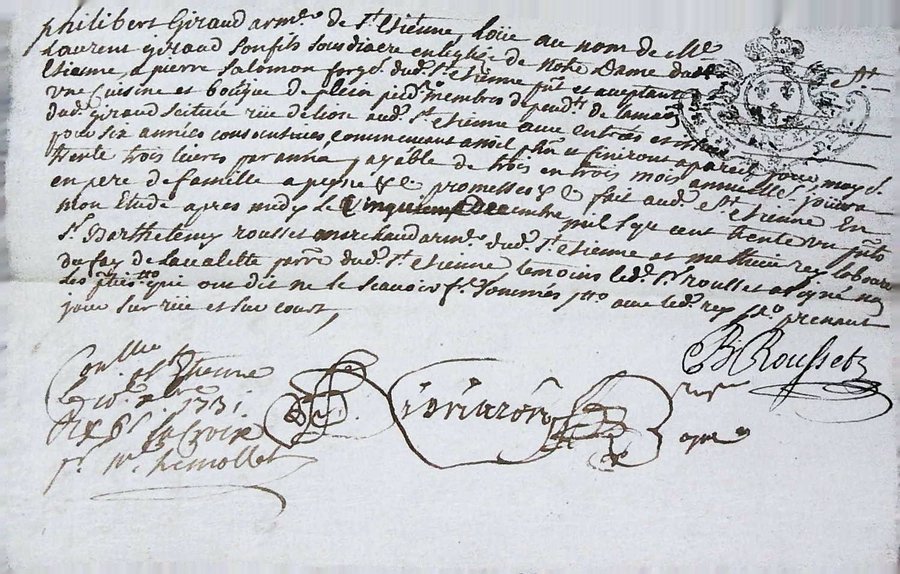 philibert Giraud arm.r de S.t Etienne, loüe au nom de M.re
Laurent giraud son fils sousdiacre en leglize de Notre Dame dud. S.t
Etienne, a pierre Salomon forg.r dud. S.t etienne p.nt et acceptant
une Cuisine et boutque de plein pied membres depend.ts de la maison
dud. giraud scituée rüe de lion aud. S.t Etienne avec entrées et
pour six années consecutives commencant a et finiront a pareil jour moy.t
trente trois livres par année payable de trois en trois mois jouira
en pere de famille a peyne &c promesses &c fait aud. S.t Etienne En
mon Etude apres midy le Cinquieme Decembre mil sept cent trente un p.nts
S.r Barthelemy rousset marchand arm.r dud. S.t Etienne et mathieu rey laboureur
du fay de Lavalette parr.e dud. S.t etienne temoins led. S.r rousset a signé non
les parties qui ont dit ne le scavoir f.e sommés avec led. rey prenant
jour sur rüe et sur court,
B Rousset
Conllé
a S.t Etienne
le 10.e x.bre 1731.
lacroix
p.r M.r hemollet